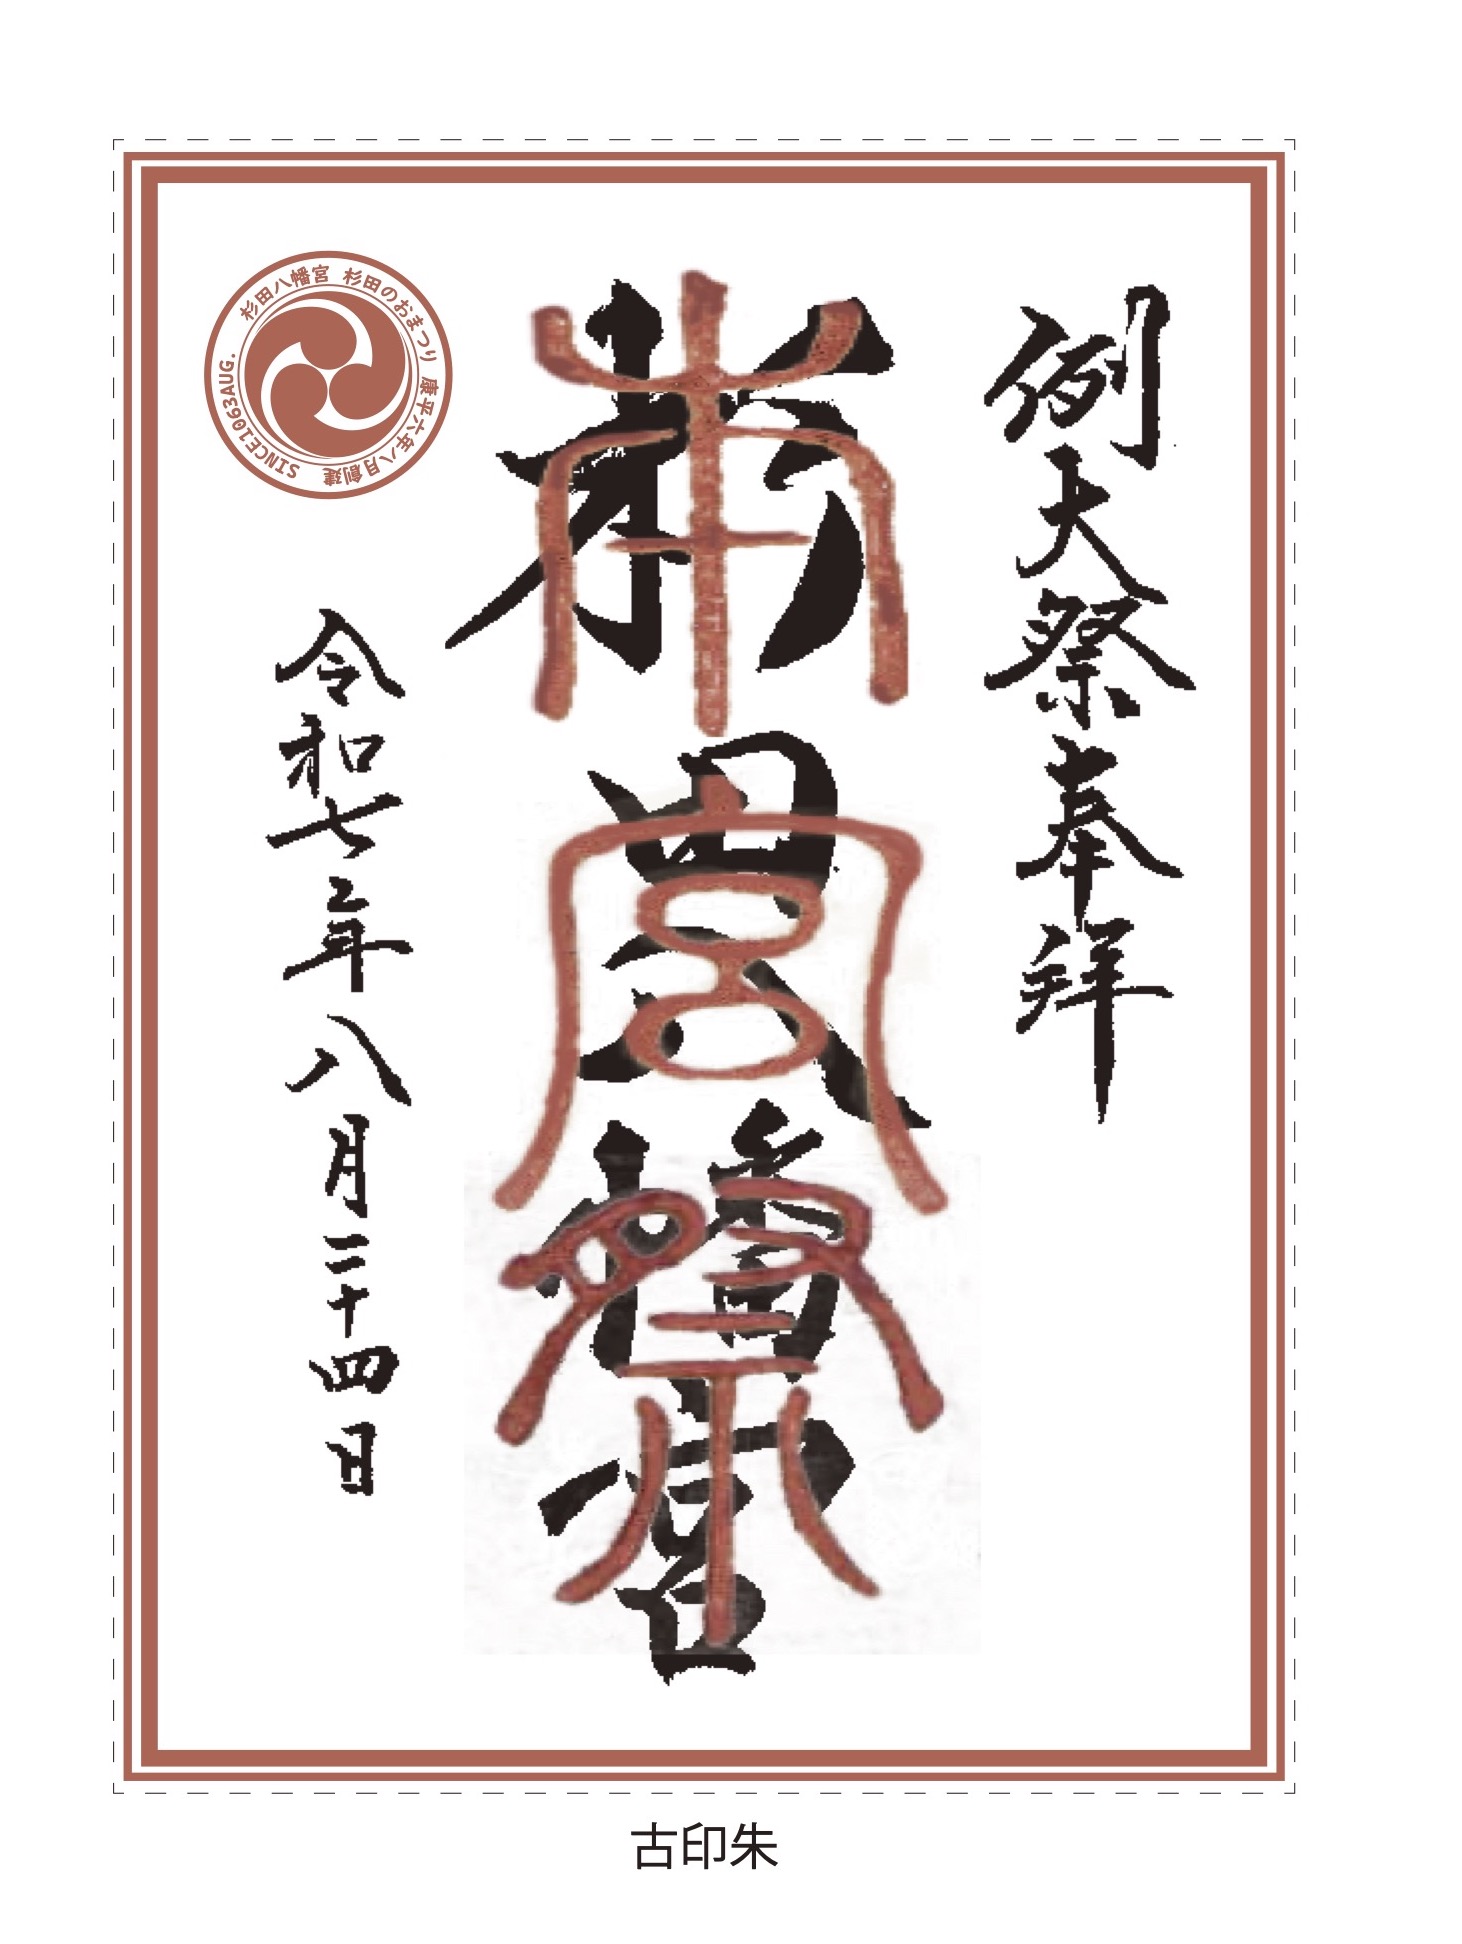 例大祭奉拝
杉田八幡宮
本宮祭
杉田八幡宮 杉田のおまつり 康平六年八月創建 SINCE1063AUG.
令和七年八月二十四日
古印朱